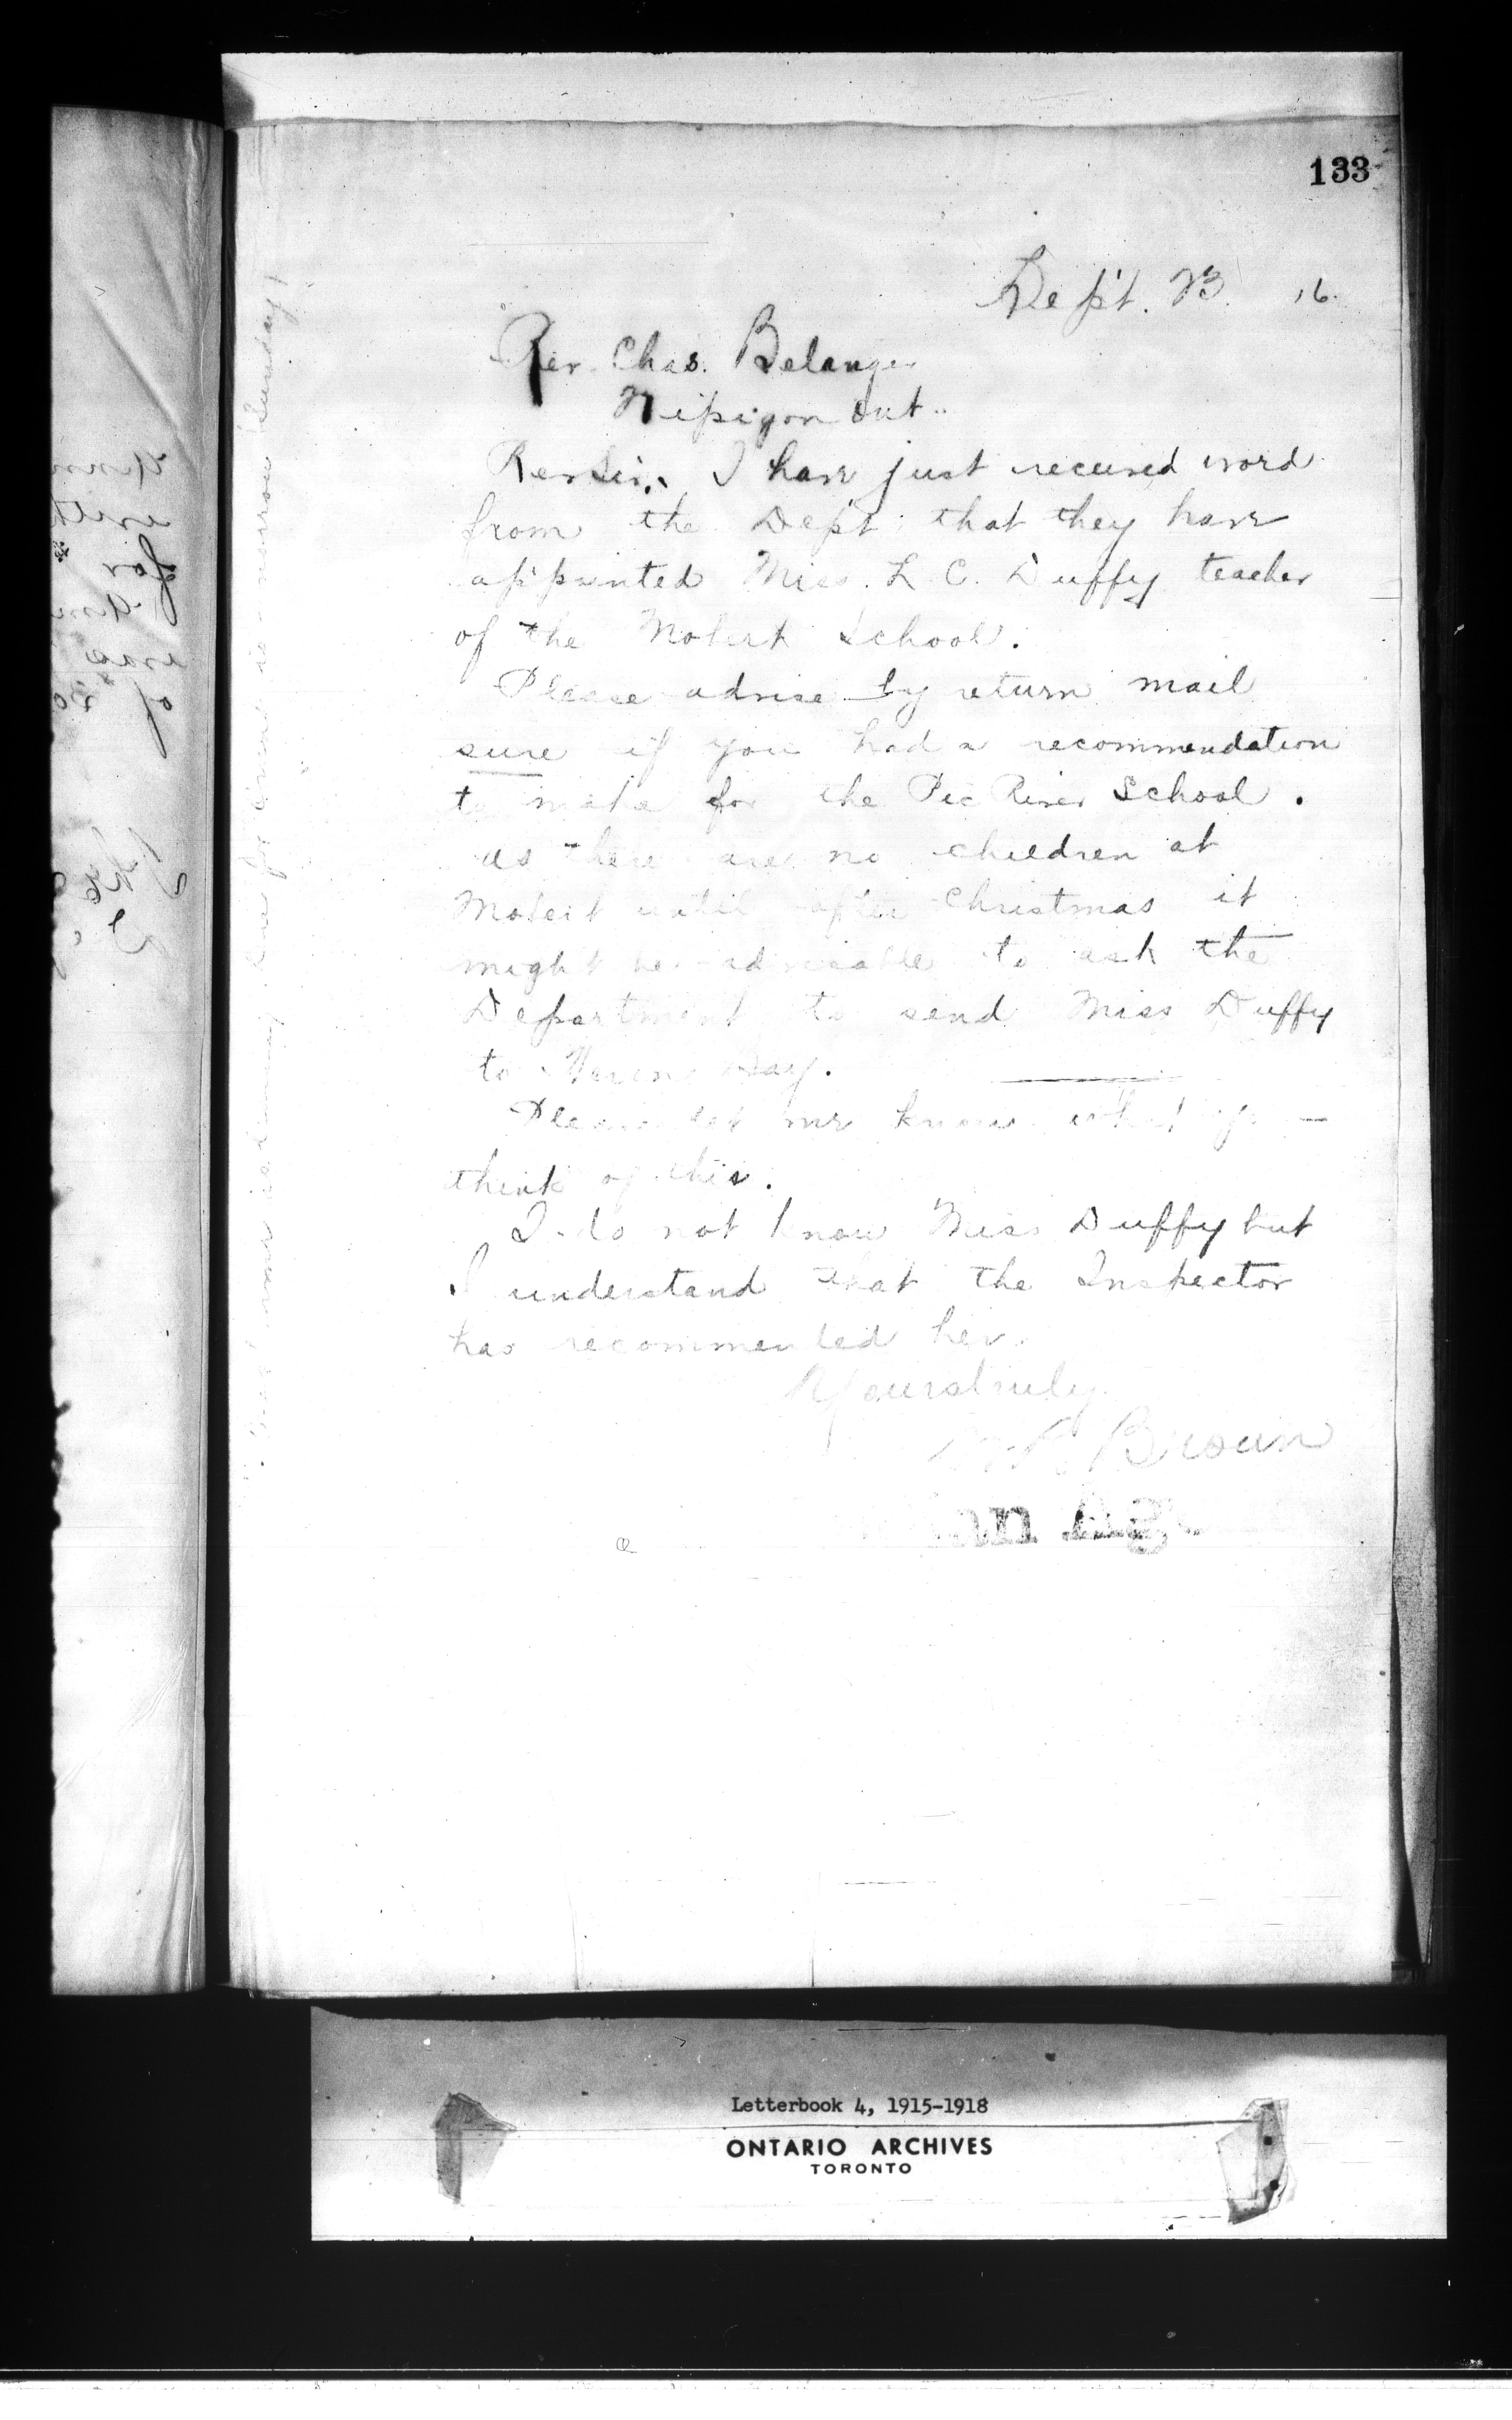 133
Sept. 23 16.
Rev. Chas. Belanger
Nipigon Ont.
Rev Sir, I have just received word
from the Dept. that they have
appointed Miss. L. C. Duffy teacher
of the Mobert School.
Please advise by return mail
sure if you had a recommendation
to make for the Pic River School.
as there are no children at
Mobert until after Christmas it
might be advisable to ask the
Department to send Miss Duffy
to Bay.
Please let me know what
think of this.
I do not know Miss Duffy but
I understand that the Inspector
has recommended her.
Yours truly
Brown
Letterbook 4, 1915-1918
ONTARIO ARCHIVES
TORONTO